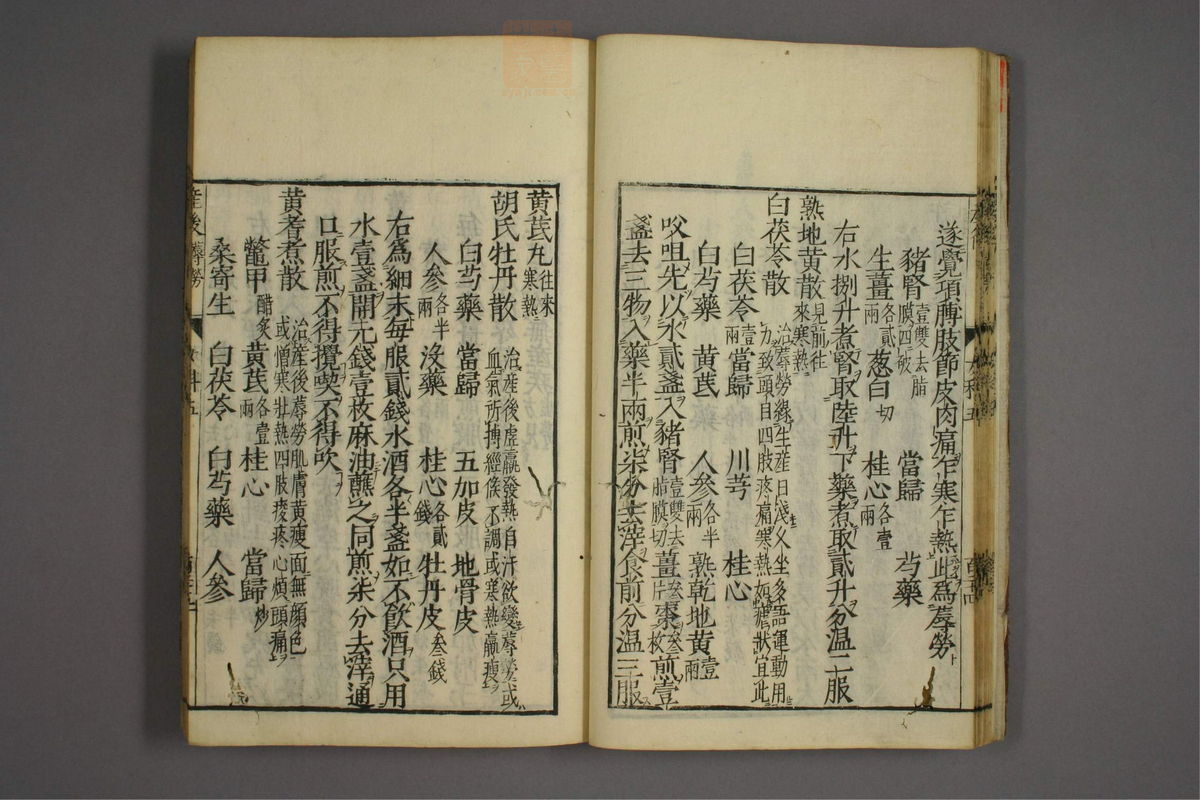 遂覺項膊肢節皮肉痛乍寒乍熱此爲蓐勞
猪腎壹雙去脂膜四破 當歸 芍藥
生薑各貳兩 葱白切 桂心各壹兩
右水捌升煮腎取陸升下藥煮取貳升分温二服
熟地黄散見前往來寒熱
白茯苓散治蓐勞緣生産日淺久坐多語運動用力致頭目四肢疼痛寒熱如瘧狀宜此
白茯苓壹兩 當歸 川芎 桂心
白芍藥 黄芪 人參各半兩 熟乾地黄壹兩
㕮咀先以水貳盞入猪腎壹雙去脂膜切薑片棗叁枚煎壹
盞去三物入藥半兩煎柒分去滓食前分温三服
黄芪丸往來寒熱
胡氏牡丹散治産後虚羸發熱自汗欲變蓐勞或血氣所搏經候不調或寒熱羸瘦
白芍藥 當歸 五加皮 地骨皮
人參各半兩 没藥 桂心各貳錢 牡丹皮叁錢
右爲細末每服貳錢水酒各半盞如不飲酒只用
水壹盞開元錢壹枚麻油蘸之同煎柒分去滓通
口服煎不得攪喫不得吹
黄耆煮散治産後蓐勞肌膚黄瘦面無顏色或憎寒壯熱四肢痠疼心煩頭痛
鼈甲醋炙 黄芪各壹兩 桂心 當歸炒
桑寄生 白茯苓 白芍藥 人參
産後蓐勞